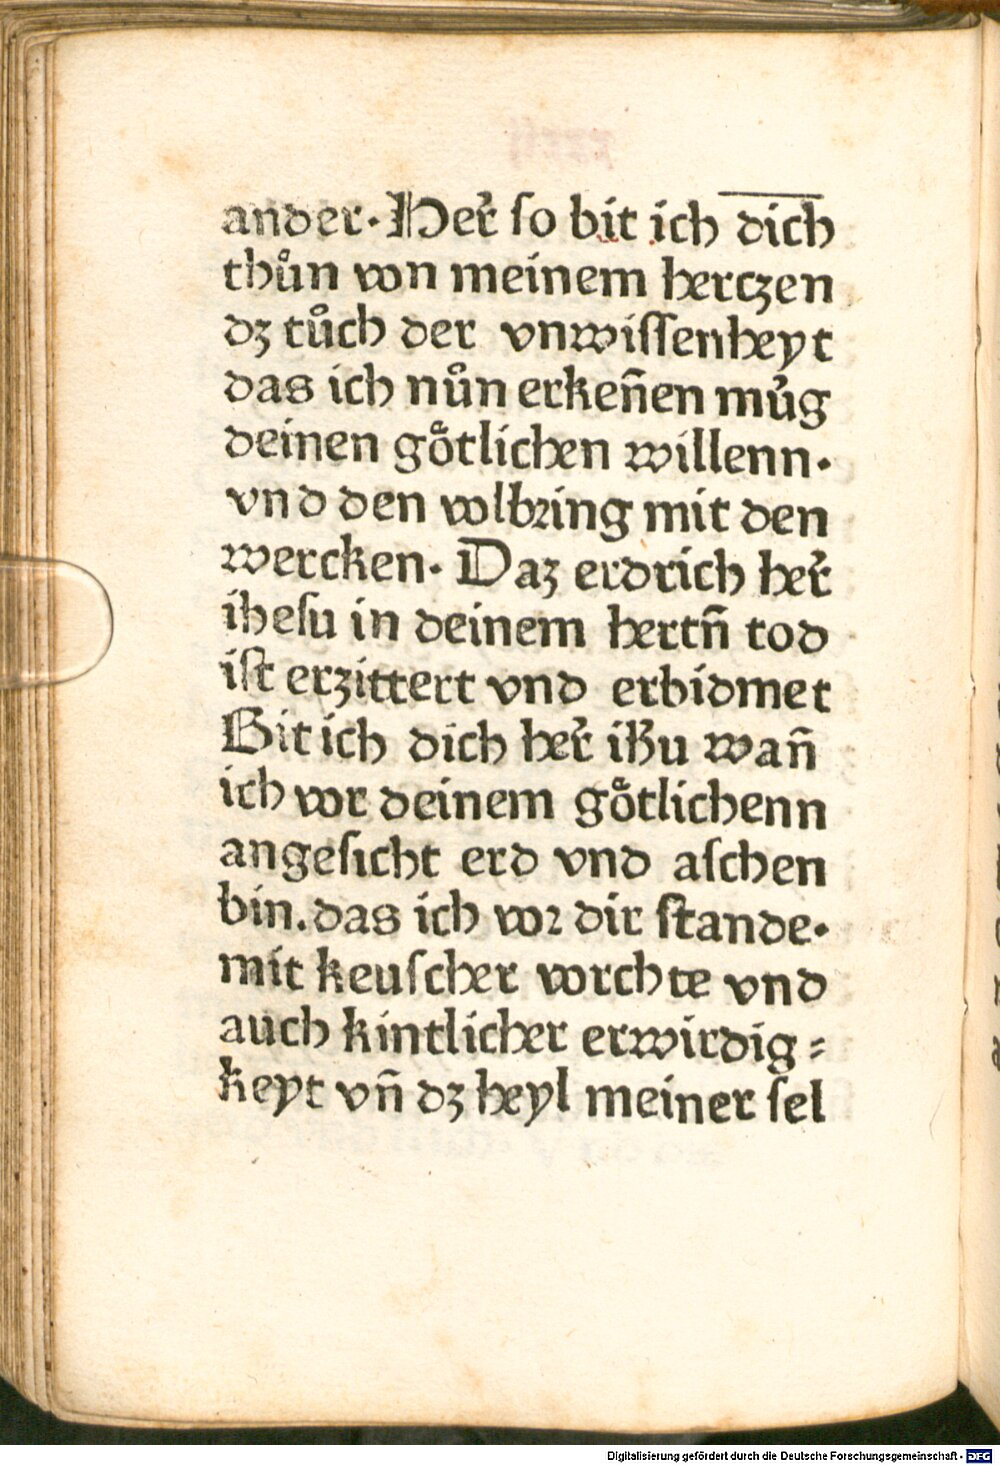 ander·Her̉ ſo bit ich dich
thůn von meinem hertzen
dz tůch der vnwiſſenheyt
das ich nůn erkeñen mu̓g
deinen goͤtlichen willenn·
vnd den volbꝛing mit den
wercken· Daz erdrich her̉
iheſu in deinem hertñ tod
iſt erzittert vnd erbidmet
Bit ich dich her̉ ihᷤu wañ
ich vor deinem goͤtlichenn
angeſicht erd vnd aſchen
bin.das ich voꝛ dir ſtande·
mit keuſcher vorchte vnd
auch kintlicher erwirdig⸗
keyt vñ dz heyl meiner ſel
Digitalisierung gefördert durch die Deutsche Forschungsgemeinschaft - DFG